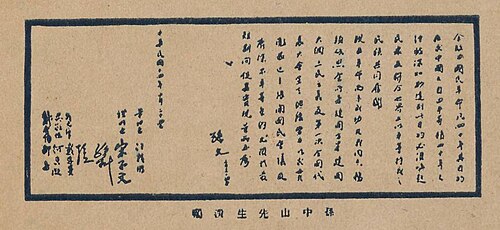 余致力國民革命凡四十年其目的
在求中國之自由平等積四十年之
經驗深知欲達到此目的必須喚起
民眾及聯合世界上以平等待我之
民族共同奮鬥
現在革命尚未成功凡我同志務
須依照余所著建國方略建國
大綱三民主義及第一次全國代
表大會宣言繼續努力以求貫
徹最近主張開國民會議及
廢除不平等條約尤須於最
短期間促其實現是所至囑
孫文
中華民國十四年二月二十四日
筆記者 汪精衛
證明者 宋子文
孫中山先生遺囑